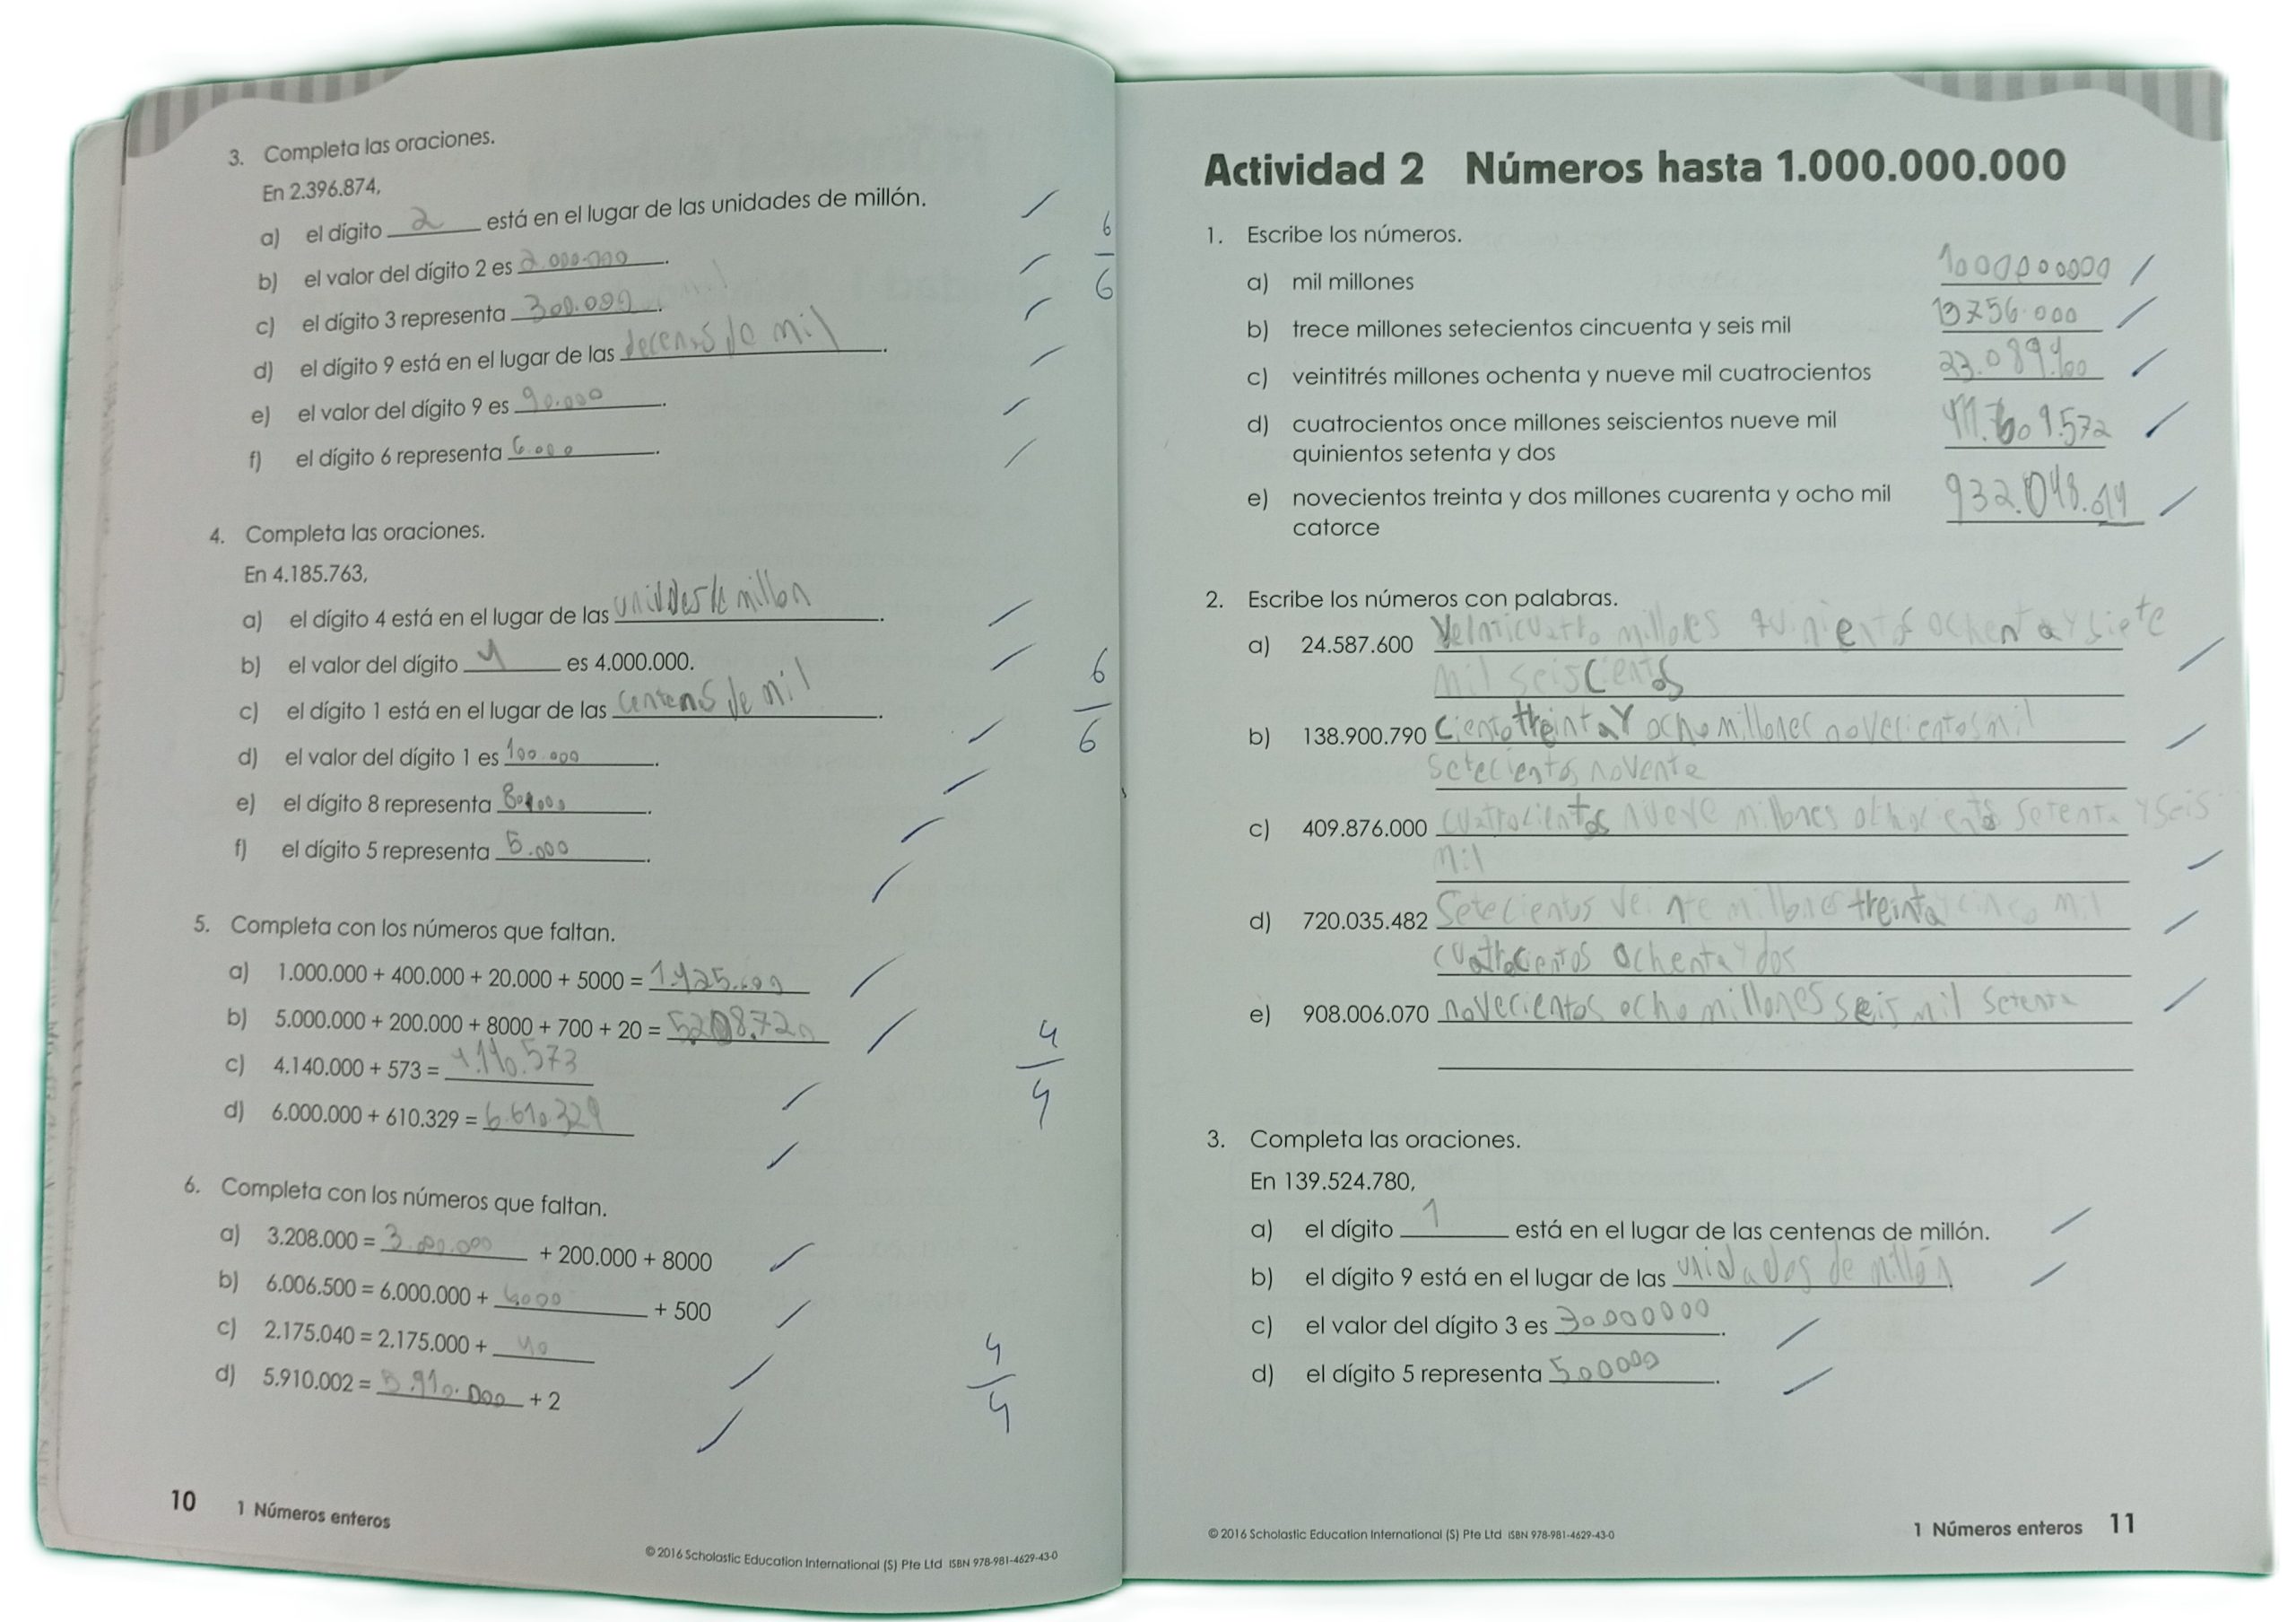 3. Completa las oraciones.
En 2.396.874,
a) el dígito 2 está en el lugar de las unidades de millón.
b) el valor del dígito 2 es 2.000.000.
c) el dígito 3 representa 300.000.
d) el dígito 9 está en el lugar de las decenas de mil.
e) el valor del dígito 9 es 90.000.
f) el dígito 6 representa 6.000.
6
6
4. Completa las oraciones.
En 4.185.763,
a) el dígito 4 está en el lugar de las unidades de millon.
b) el valor del dígito 4 es 4.000.000.
c) el dígito 1 está en el lugar de las centenas de mil.
d) el valor del dígito 1 es 100.000.
e) el dígito 8 representa
f) el dígito 5 representa 5.000.
6
6
5. Completa con los números que faltan.
a) 1.000.000 + 400.000 + 20.000 + 5000 = 1.425.000
b) 5.000.000 + 200.000 + 8000 + 700 + 20 = 5.208.720
c) 4.140.000 + 573 = 4.140.573
d) 6.000.000 + 610.329 = 6.610.329
4
4
6. Completa con los números que faltan.
a) 3.208.000 = 3.000.000 + 200.000 + 8000
b) 6.006.500 = 6.000.000 + 6000 + 500
c) 2.175.040 = 2.175.000 + 40
d) 5.910.002 = 5.910.000 + 2
4
4
10 1 Números enteros
© 2016 Scholastic Education International (S) Pte Ltd ISBN 978-981-4629-43-0
Actividad 2 Números hasta 1.000.000.000
1. Escribe los números.
a) mil millones 1000000000
b) trece millones setecientos cincuenta y seis mil 13756.000
c) veintitrés millones ochenta y nueve mil cuatrocientos 23.089.400
d) cuatrocientos once millones seiscientos nueve mil 411.609.572
quinientos setenta y dos
e) novecientos treinta y dos millones cuarenta y ocho mil 932.048.014
catorce
2. Escribe los números con palabras.
a) 24.587.600 Veinticuatro millones quinientos ochenta y siete
mil seiscientos
b) 138.900.790 Ciento treinta y ocho millones novecientos mil
setecientos noventa
c) 409.876.000 cuatrocientos nueve millones ochocientos setenta y seis
mil
d) 720.035.482 Setecientos veinte millones treinta y cinco mil
cuatrocientos ochenta y dos
e) 908.006.070 novecientos ocho millones seis mil setenta
3. Completa las oraciones.
En 139.524.780,
a) el dígito 1 está en el lugar de las centenas de millón.
b) el dígito 9 está en el lugar de las unidades de millón.
c) el valor del dígito 3 es 30000000.
d) el dígito 5 representa 500000.
© 2016 Scholastic Education International (S) Pte Ltd ISBN 978-981-4629-43-0
1 Números enteros 11